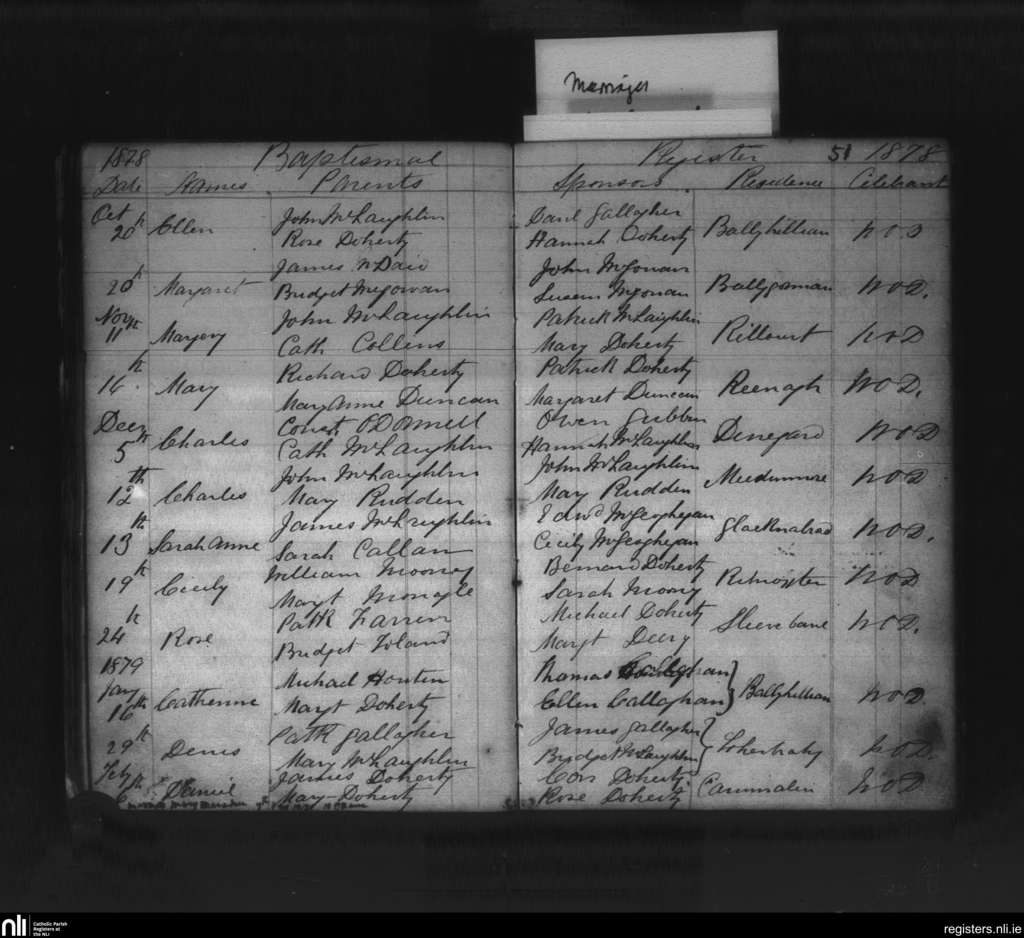 Marriages
1878 Baptismal Register 51 1878
Date Names Parents Sponsors Residence Celebrant
Oct John McLaughlin Danl Gallagher
20th Ellen Rose Doherty Hannah Doherty Ballyhillian W O D
James McDaid John McGowan
20th Margaret Bridget McGowan Susan McGowan Ballygorman W O D.
Novr John McLaughlin Patrick McLaughlin
11th Margery Cath Collins Mary Doherty Killourt W O D
Richard Doherty Patrick Doherty
16th Mary Mary Anne Duncan Margaret Duncan Keenagh W O D.
Decr Const O'Donnell Owen Gubbin
5th Charles Cath McLaughlin Hannah McLaughlin W O D
John McLaughlin John McLaughlin
12th Charles Mary Rudden Mary Rudden W O D
James McLaughlin Edwd McGeoghegan
13th Sarah Anne Sarah Callan Cecily McGeoghegan W O D.
William Mooney Bernard Doherty
19th Cicily Margt Monagle Sarah Moony W O D
Patk Farren Michael Doherty
24th Rose Bridget Toland Margt Deery Sleevebane W O D.
1879
Jany Michael Houten Thomas
16th Catherine Margt Doherty Ellen Callaghan Ballyhillian W O D.
Patk Gallagher James Gallagher
29th Denis Mary McLaughlin Bridget McLaughlin W O D.
Feby James Doherty Con Doherty
6th Daniel Mary Doherty Rose Doherty Carnmalin W O D
nli Catholic Parish
Registers at
the NLI
registers.nli.ie